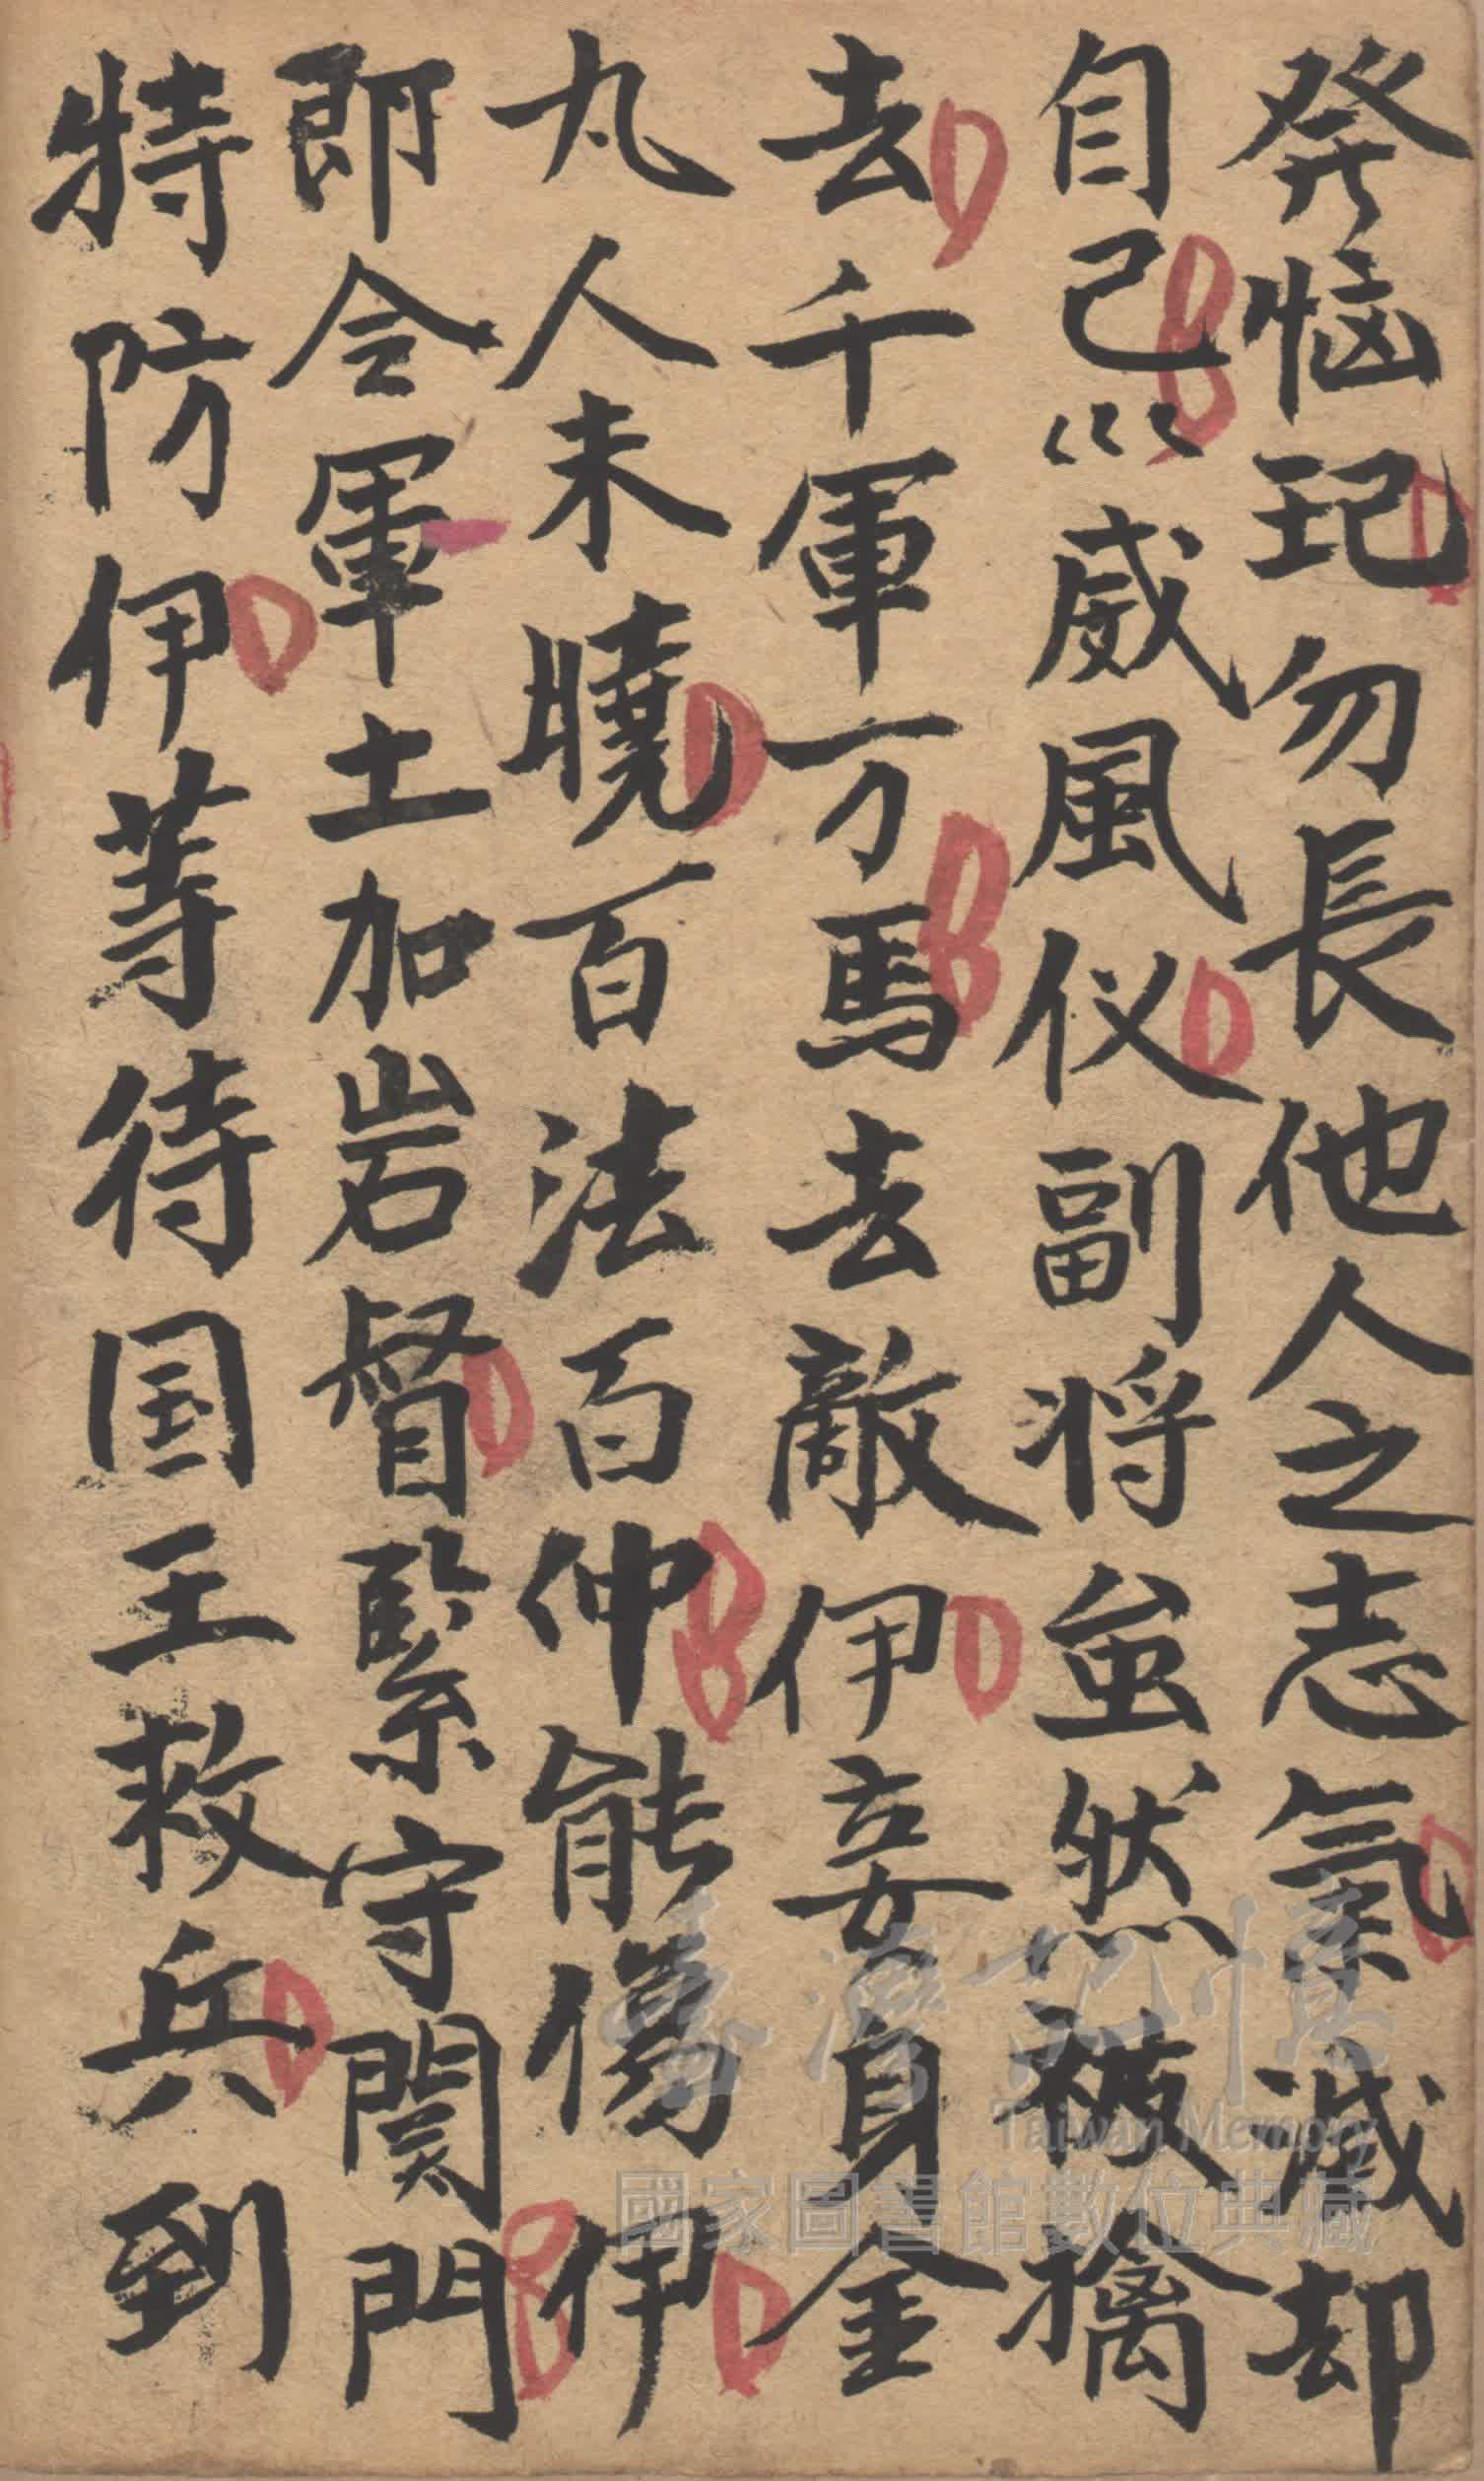 発恼玘勿長他人之志氣滅却
自己巛威風仪副将虽然被擒
去千軍万馬去敵伊妾身金
丸人未曉百法百仲能傷伊
即令軍士加岩督緊守関門
特防伊等待国王救兵到
臺灣記憶
Taiwan Memory
國家圖書館數位典藏